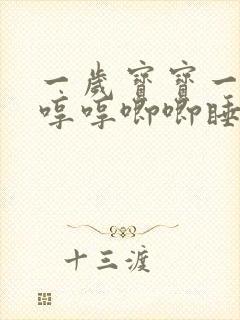 一岁宝宝一
哼哼唧唧睡
十三渡